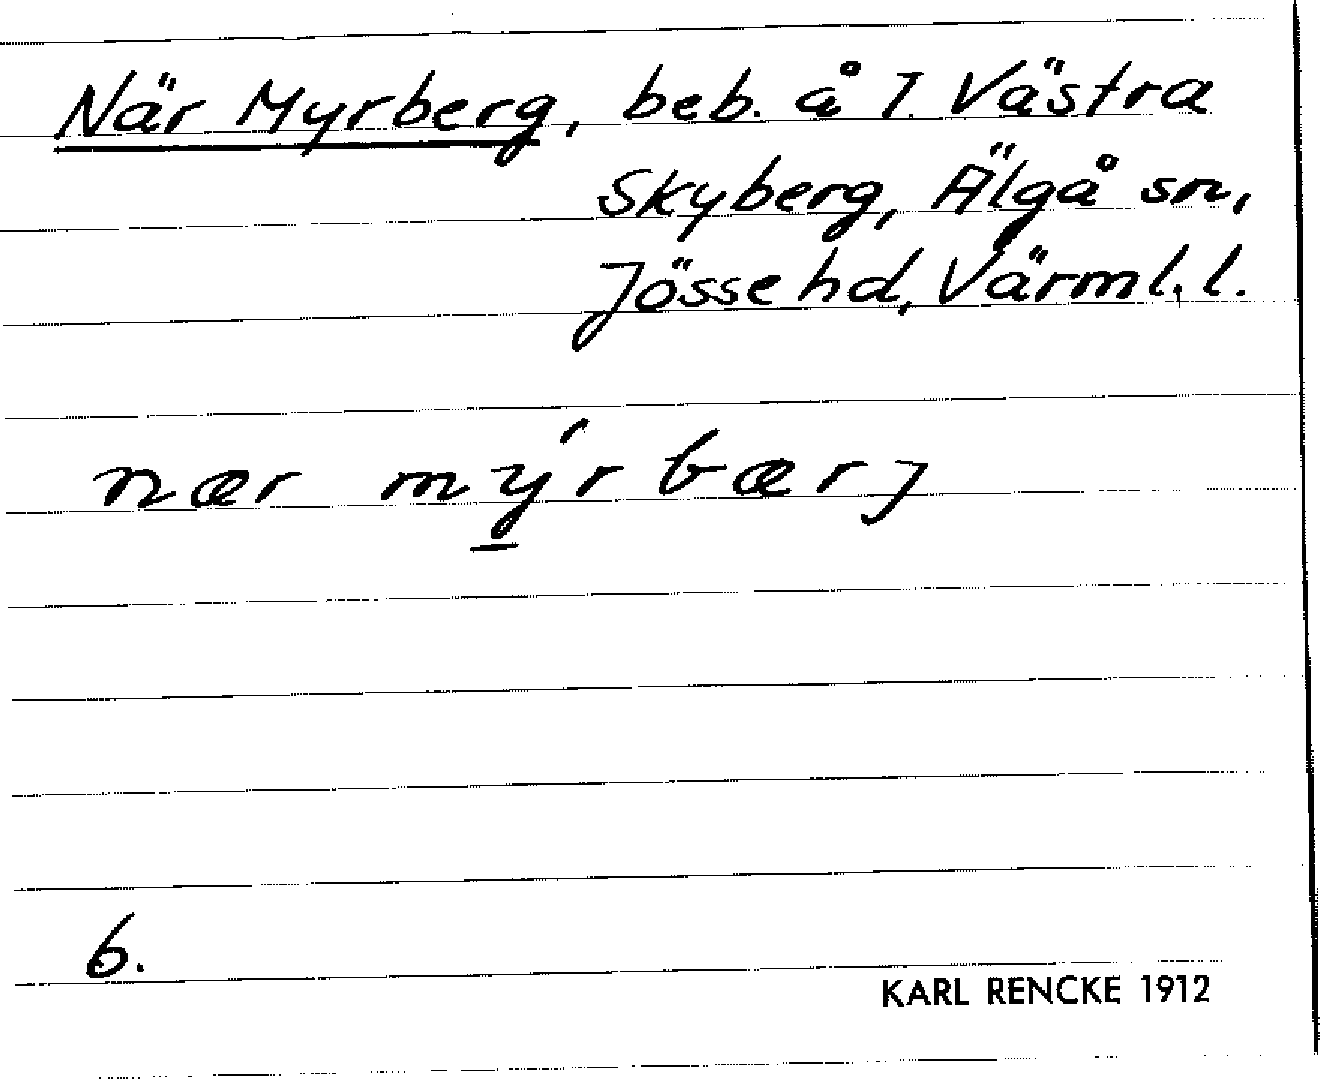 När Myrberg, beb. å 7. Västra
Skyberg, Älgå sn,
Jösse hd, Värml. l.
nær mý̲r bærj
6.
KARL RENCKE 1912